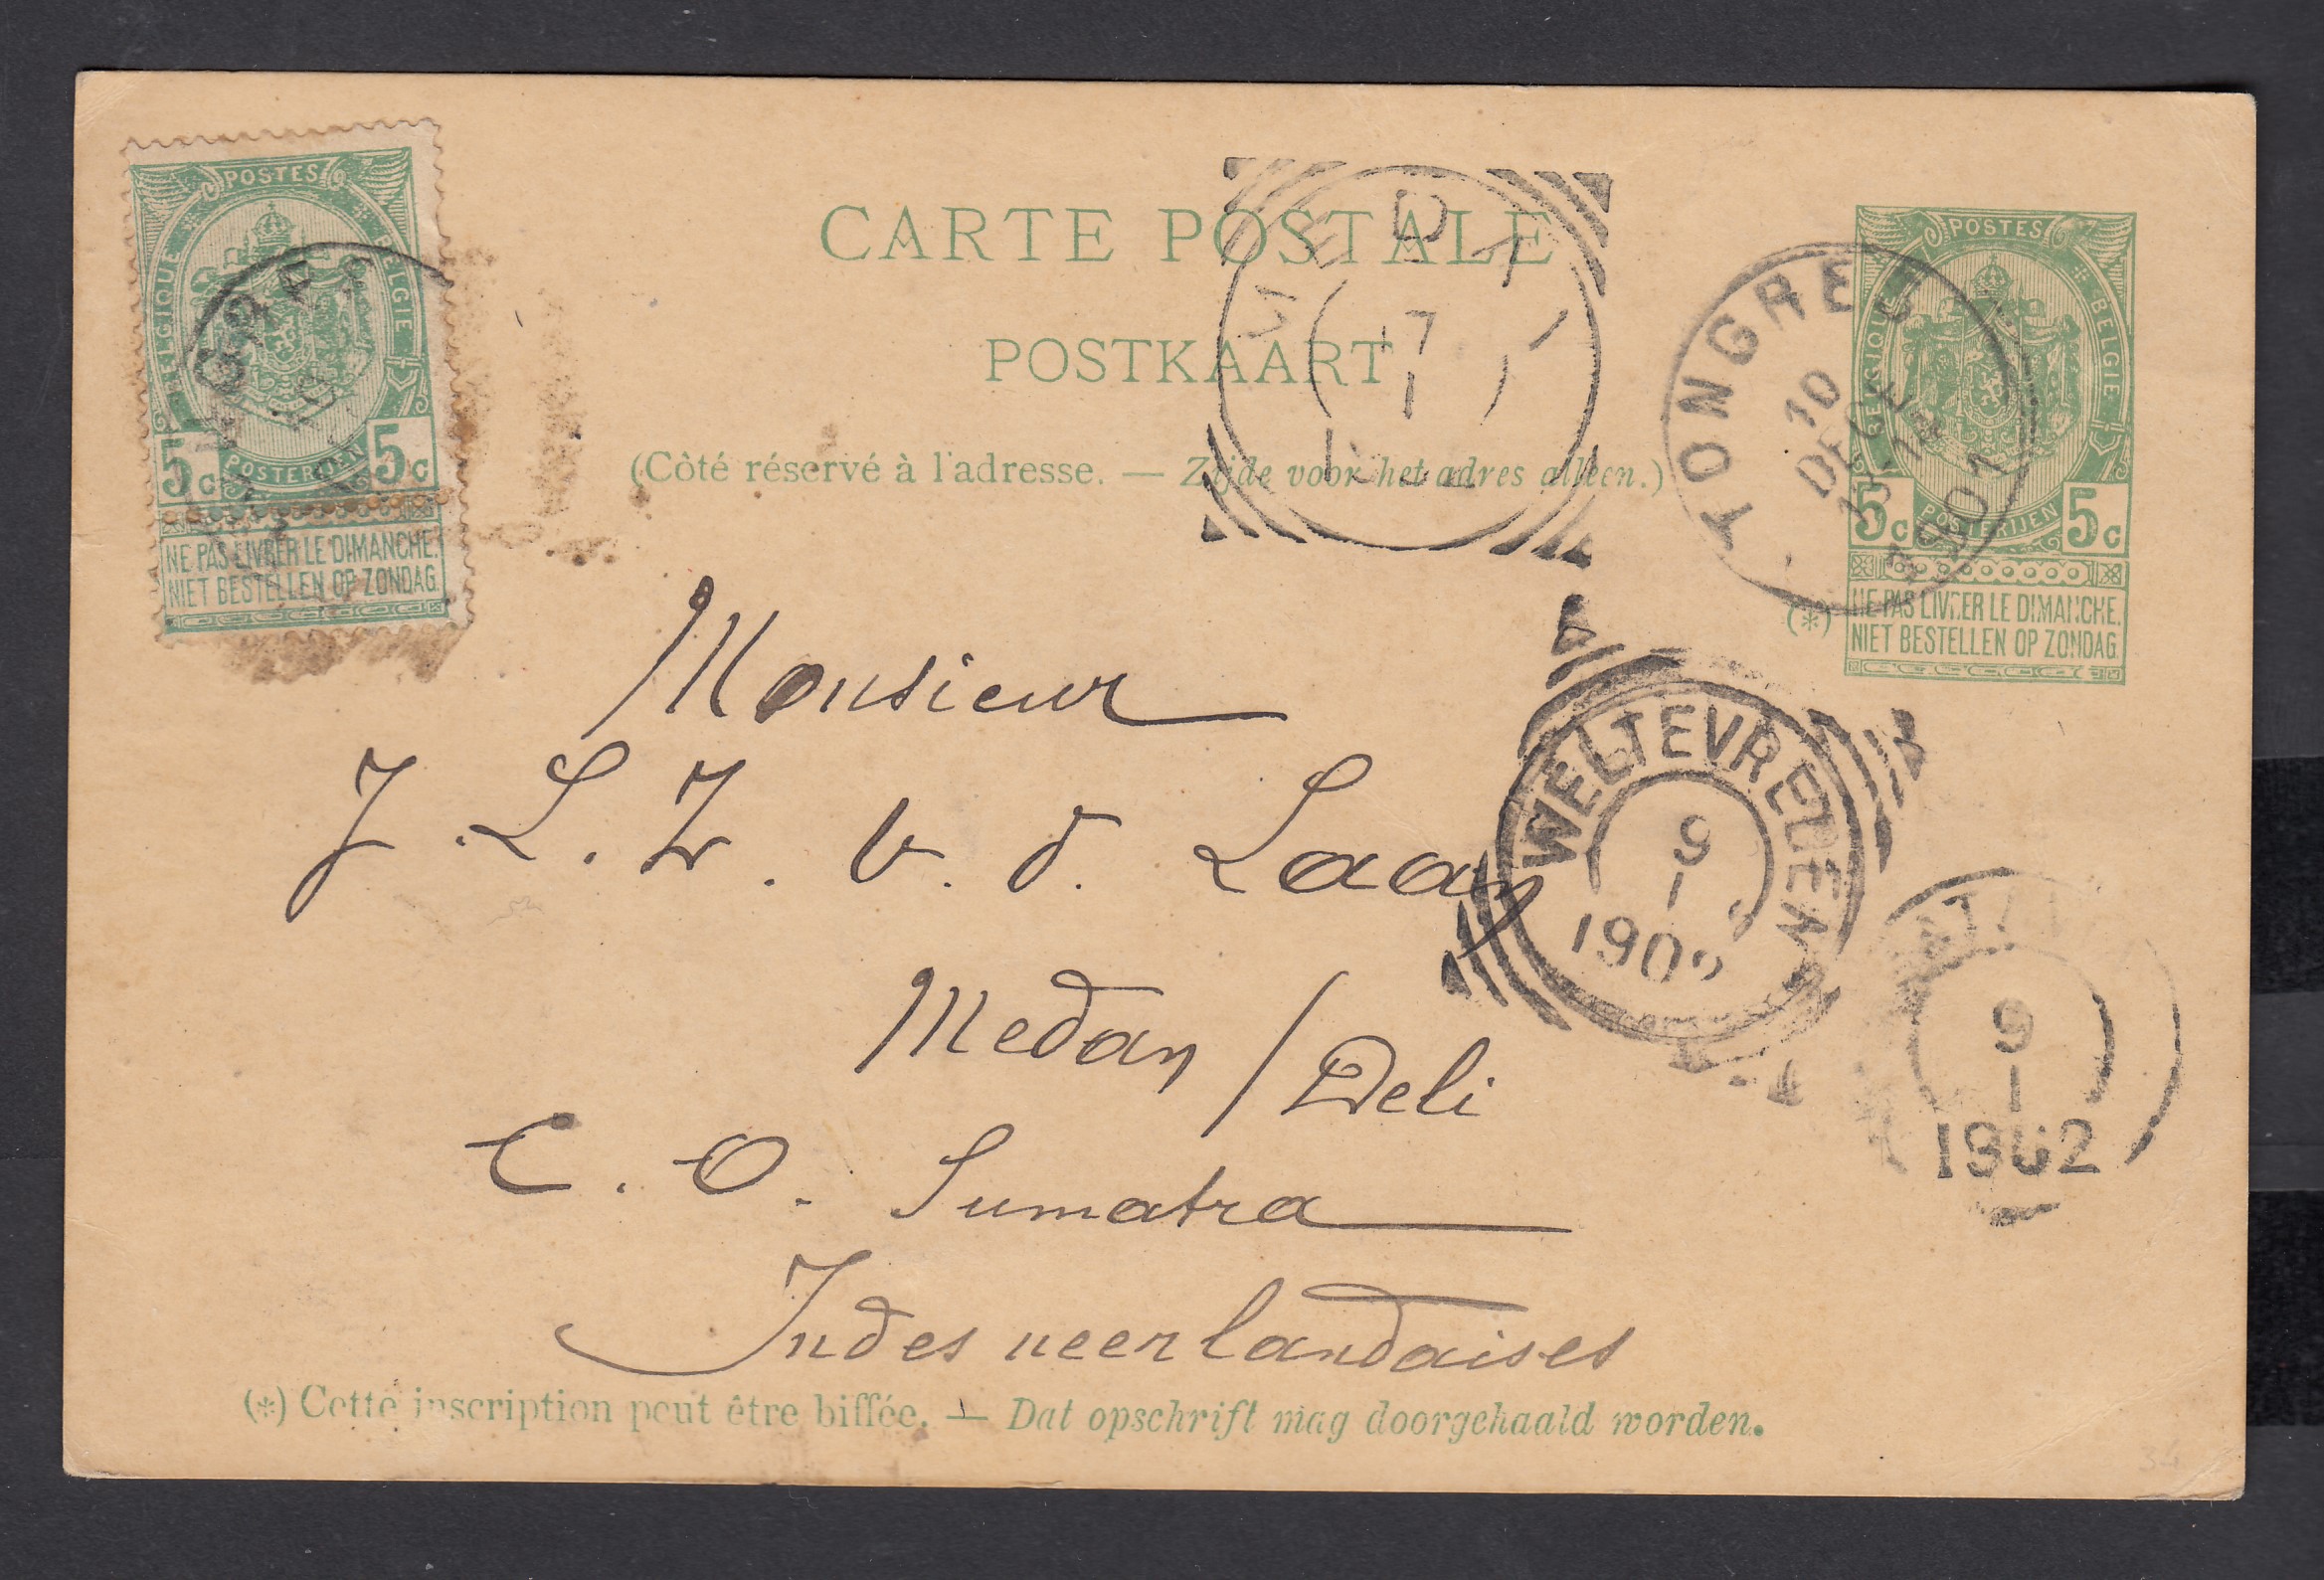 POSTES
BELGIQUE
BELGIE
5c
POSTERIJEN
5c
NE PAS LIVRER LE DIMANCHE.
NIET BESTELLEN OP ZONDAG.
CARTE POSTALE
POSTKAART
(Côté réservé à l'adresse. — Zijde voor het adres alleen.)
7
1
TONGRES
10
DECE
1901
POSTES
BELGIQUE
BELGIE
5c
POSTERIJEN
5c
(*)
NE PAS LIVRER LE DIMANCHE.
NIET BESTELLEN OP ZONDAG.
Monsieur
J. L. Z. v. d. Laan
Medan / Deli
C. O. Sumatra
Indes neerlandaises
WELTEVREDEN
9
1
190
9
1
1902
(*) Cette inscription peut être biffée. — Dat opschrift mag doorgehaald worden.